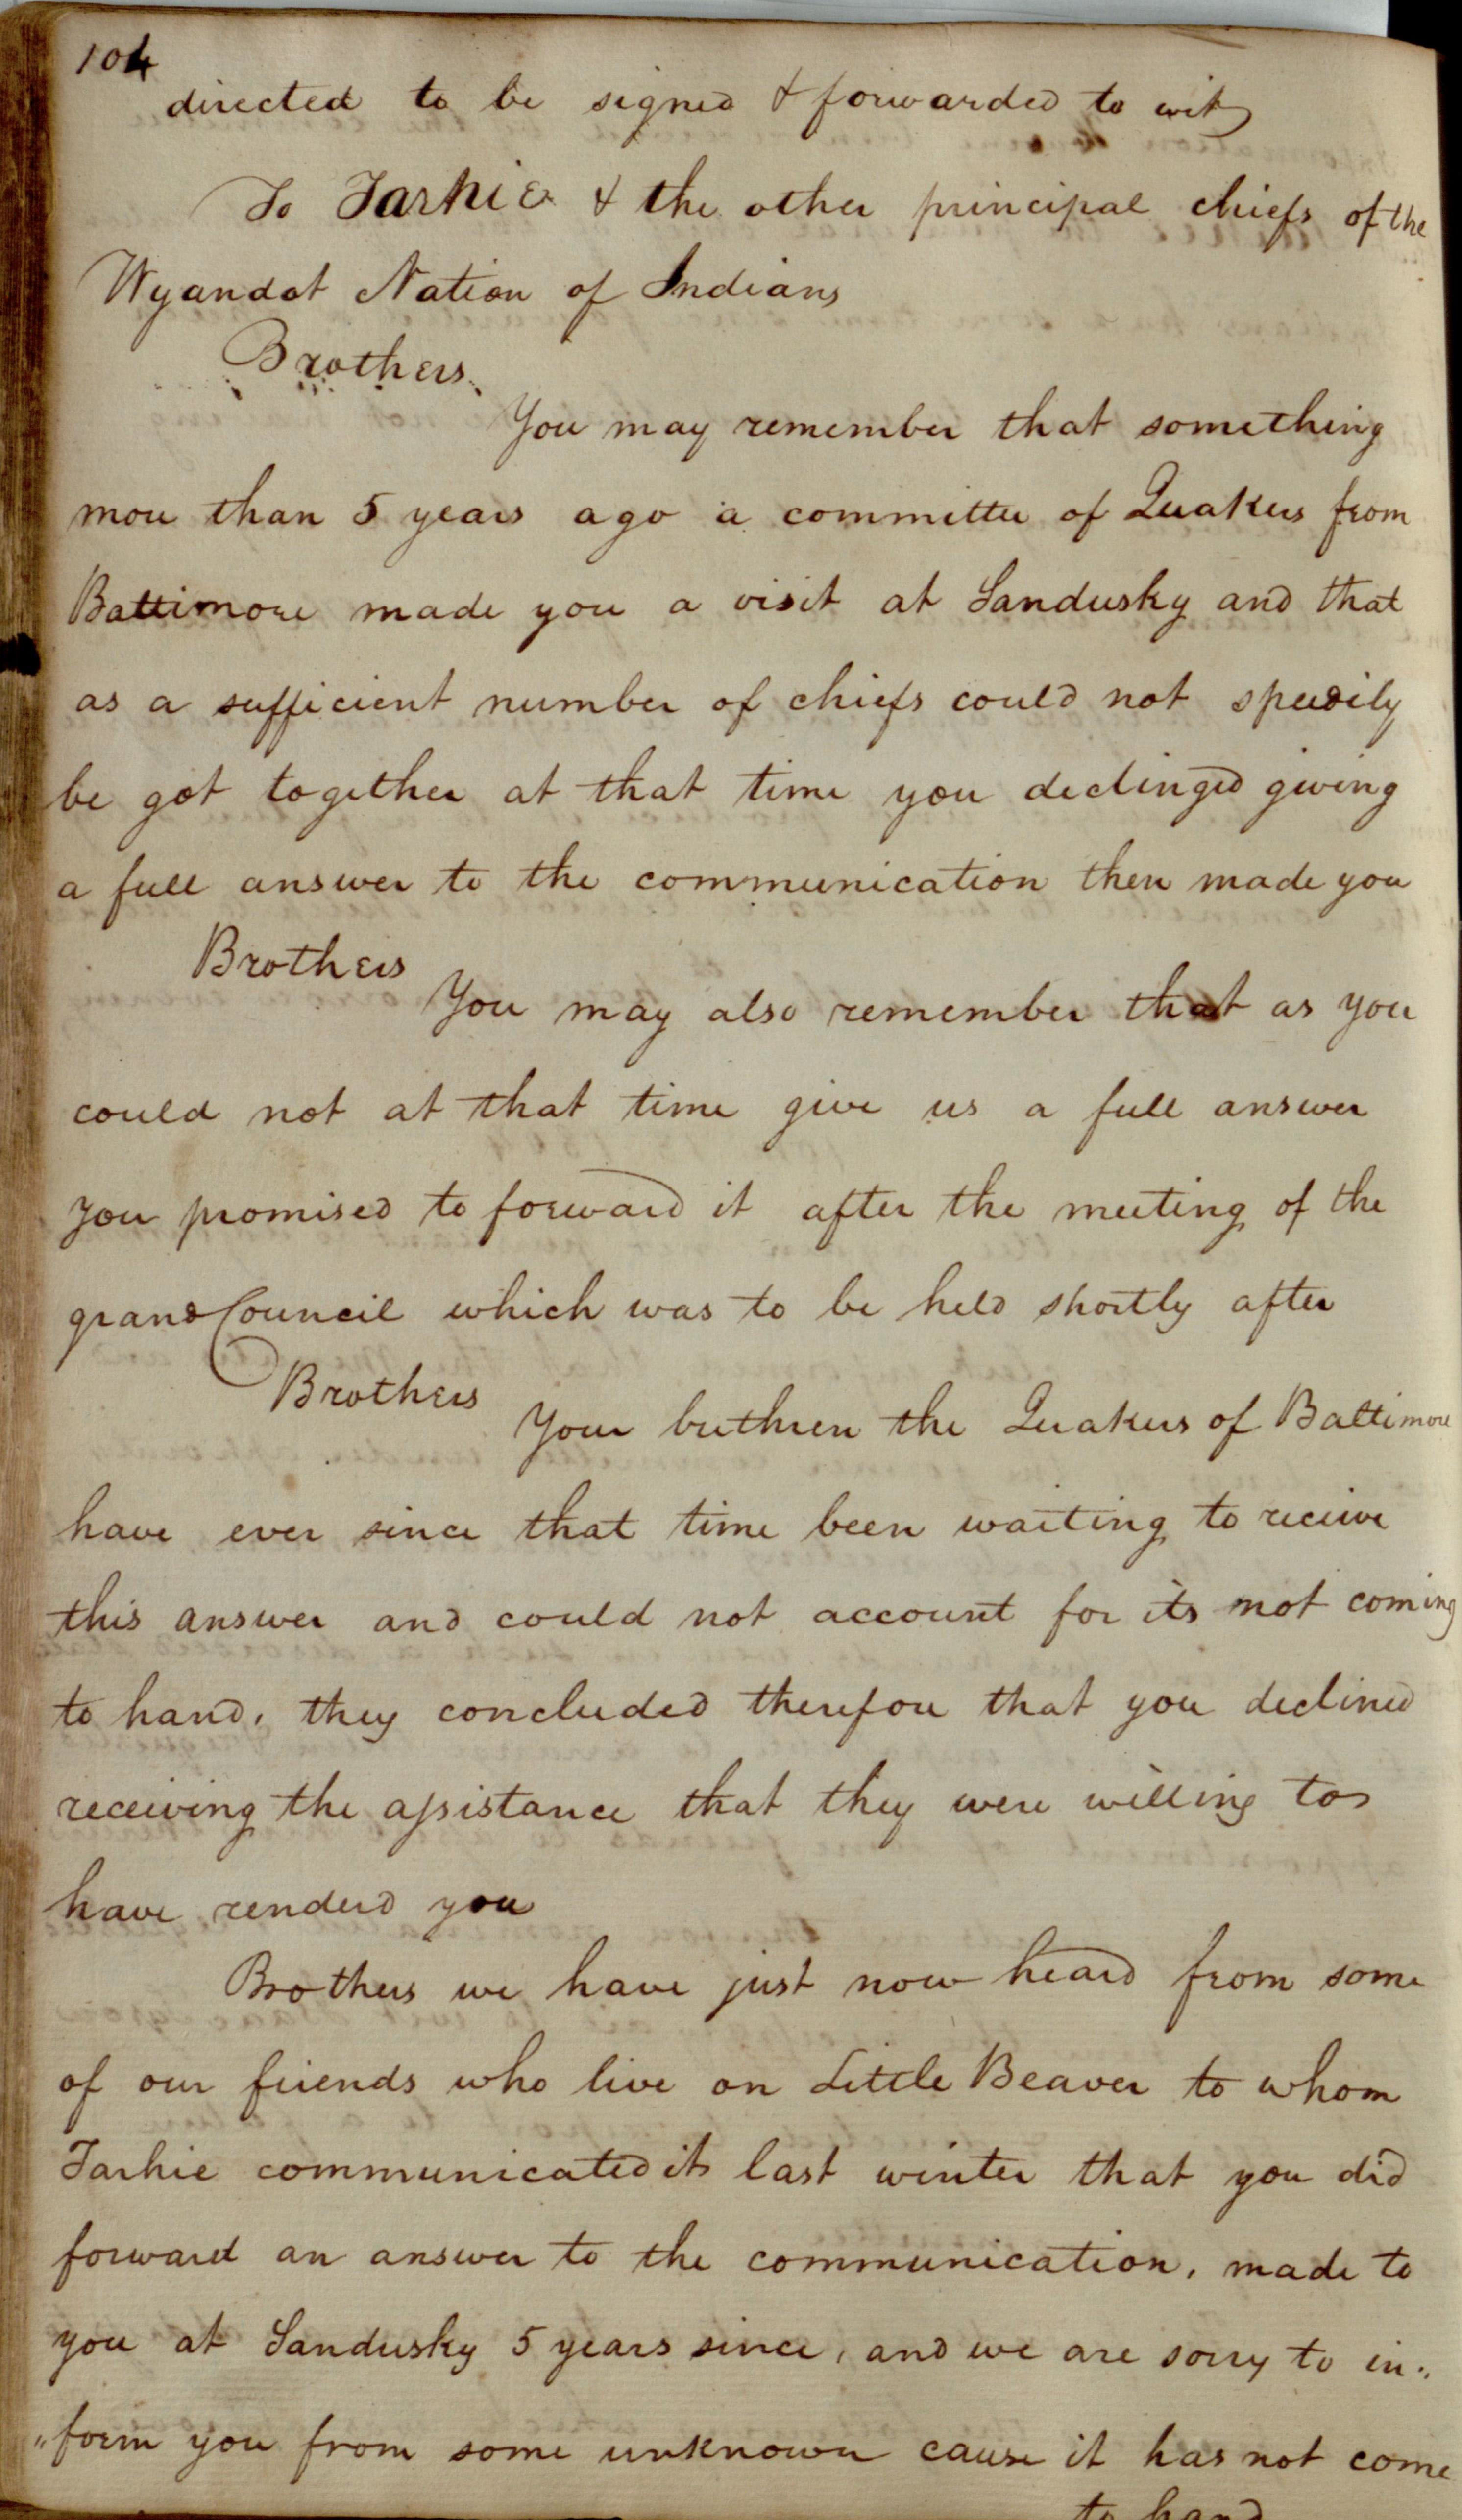 104
directed to be signed & forwarded to wit
To Tarhie & the other principal chiefs of the
Wyandot Nation of Indians
Brothers
You may remember that something
more than 5 years ago a committee of Quakers from
Baltimore made you a visit at Sandusky and that
as a sufficient number of chiefs could not speedily
be got together at that time you declinged giving
a full answer to the communication then made you
Brothers
You may also remember that as you
could not at that time give us a full answer
you promised to forward it after the meeting of the
grand Council which was to be held shortly after
Brothers
Your brethren the Quakers of Baltimore
have ever since that time been waiting to receive
this answer and could not account for its not coming
to hand, they concluded therefore that you declined
receiving the assistance that they were willing to
have renderd you
Brothers we have just now heard from some
of our friends who live on Little Beaver to whom
Tarhie communicated it last winter that you did
forward an answer to the communication, made to
you at Sandusky 5 years since, and we are sorry to in„
„form you from some unknown cause it has not come
to hand